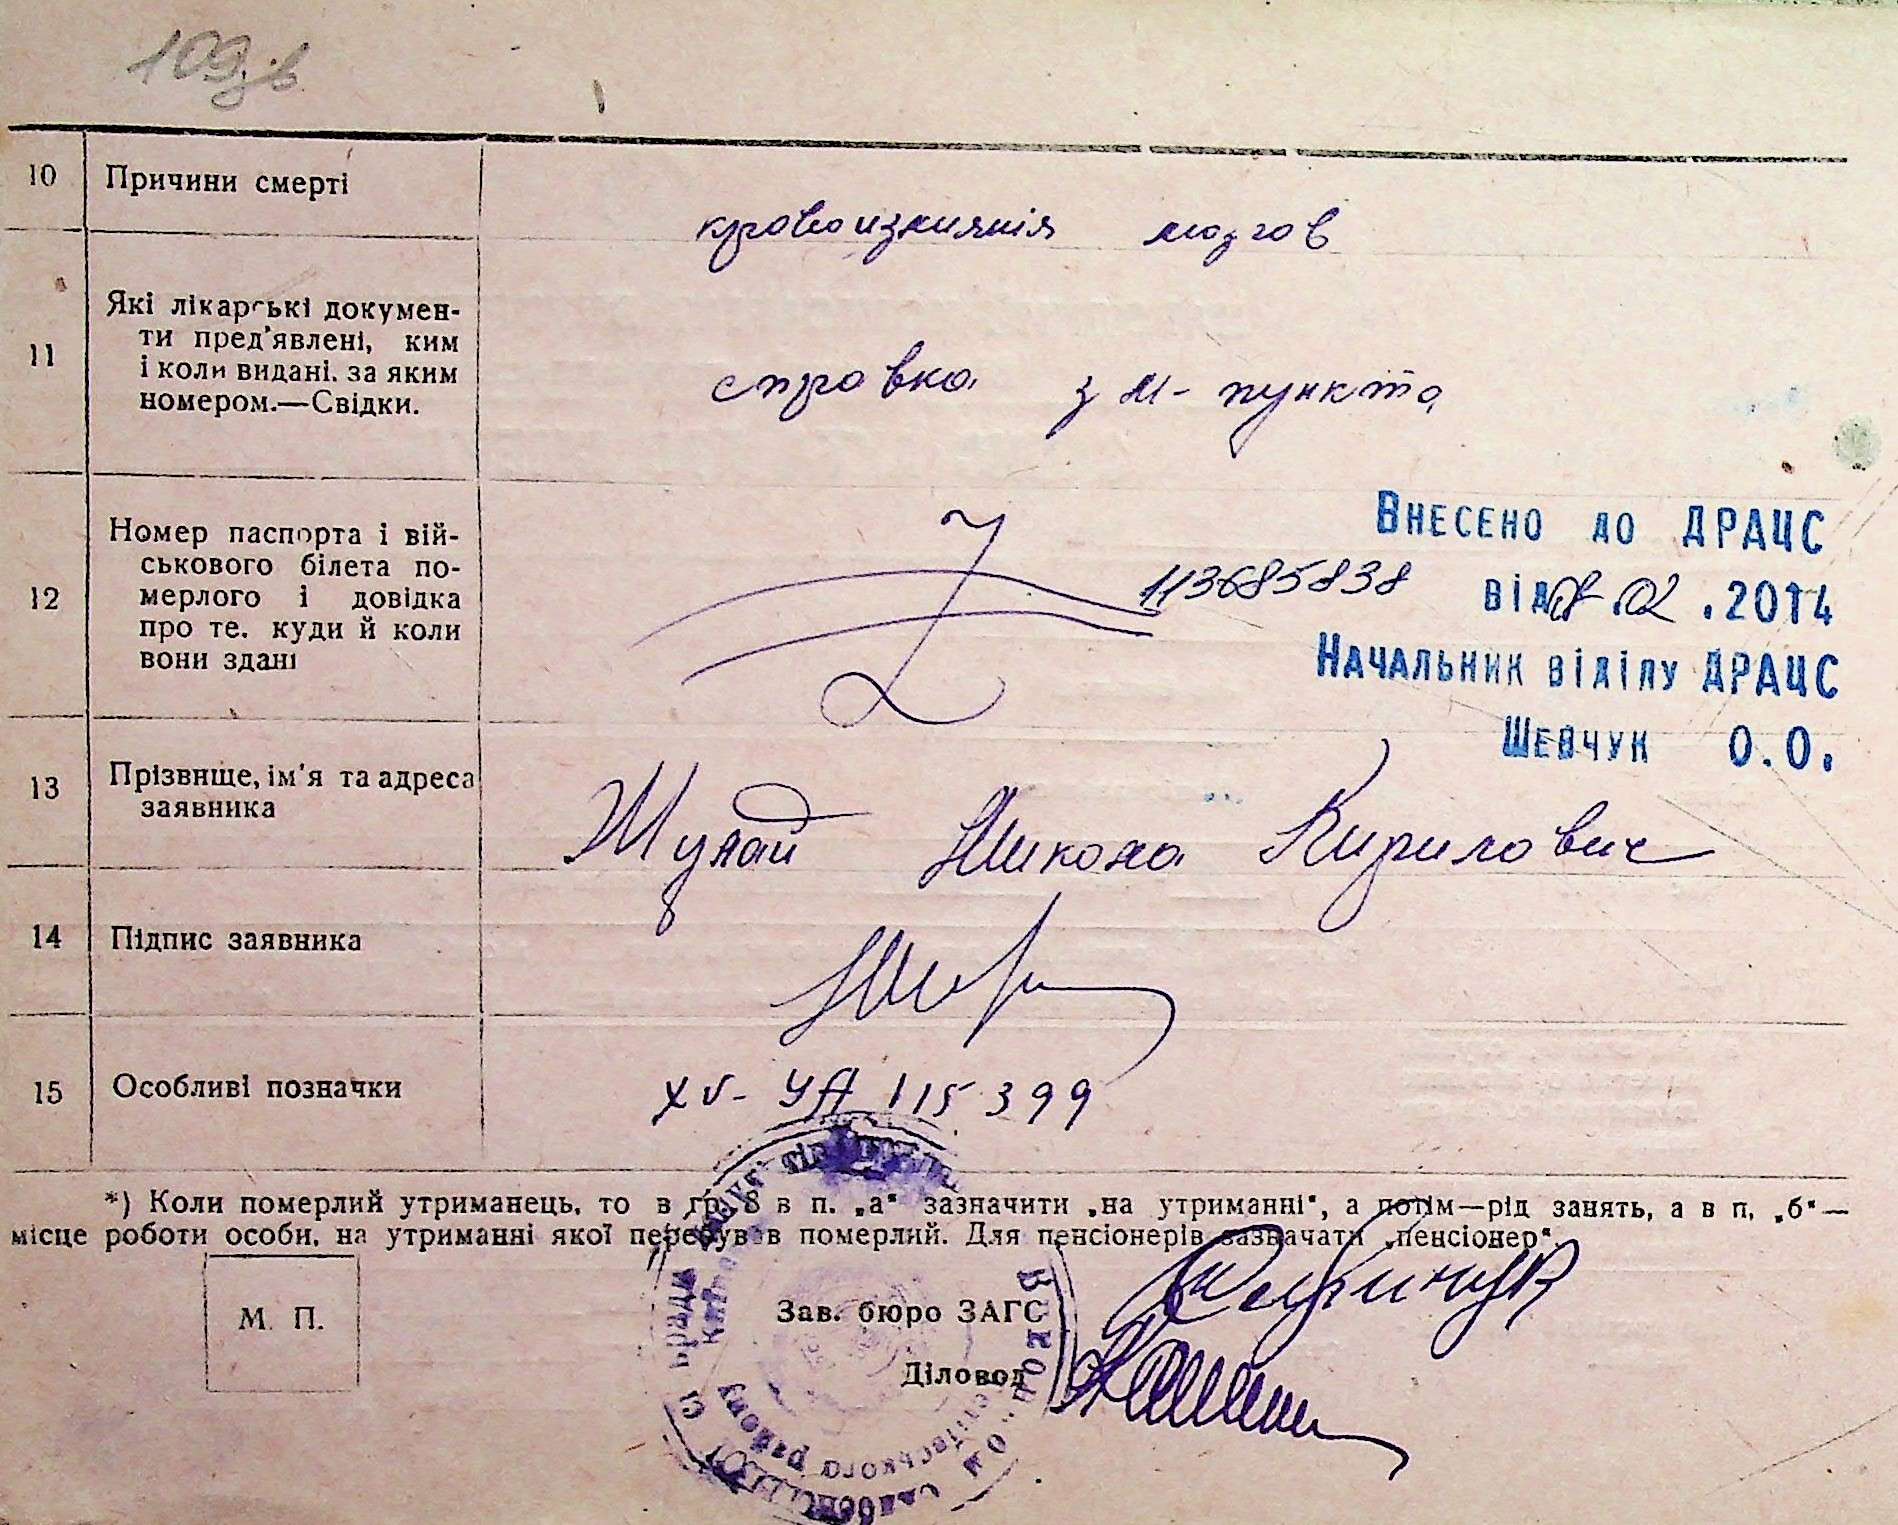 109зв
10 Причини смерті
кровоизлиянія мозгов
11 Які лікарські докумен-
ти пред'явлені, ким
і коли видані. за яким
номером.—Свідки.
справка з м-пункта
12 Номер паспорта і вій-
ськового білета по-
мерлого і довідка
про те. куди й коли
вони здані
Z
113685838
Внесено до ДРАЦС
від 02.2014
Начальник віділу ДРАЦС
Шевчук О.О.
13 Прізвище, ім'я та адреса
заявника
Микола Кирилович
14 Підпис заявника
15 Особливі позначки
XV- УА 115399
*) Коли померлий утриманець, то в гр. 8 в п. „а" зазначити „на утриманні", а потім—рід занять, а в п. „б"—
місце роботи особи, на утриманні якої перебував померлий. Для пенсіонерів зазначати „пенсіонер".
М. П.
Зав. бюро ЗАГС
Діловод
району